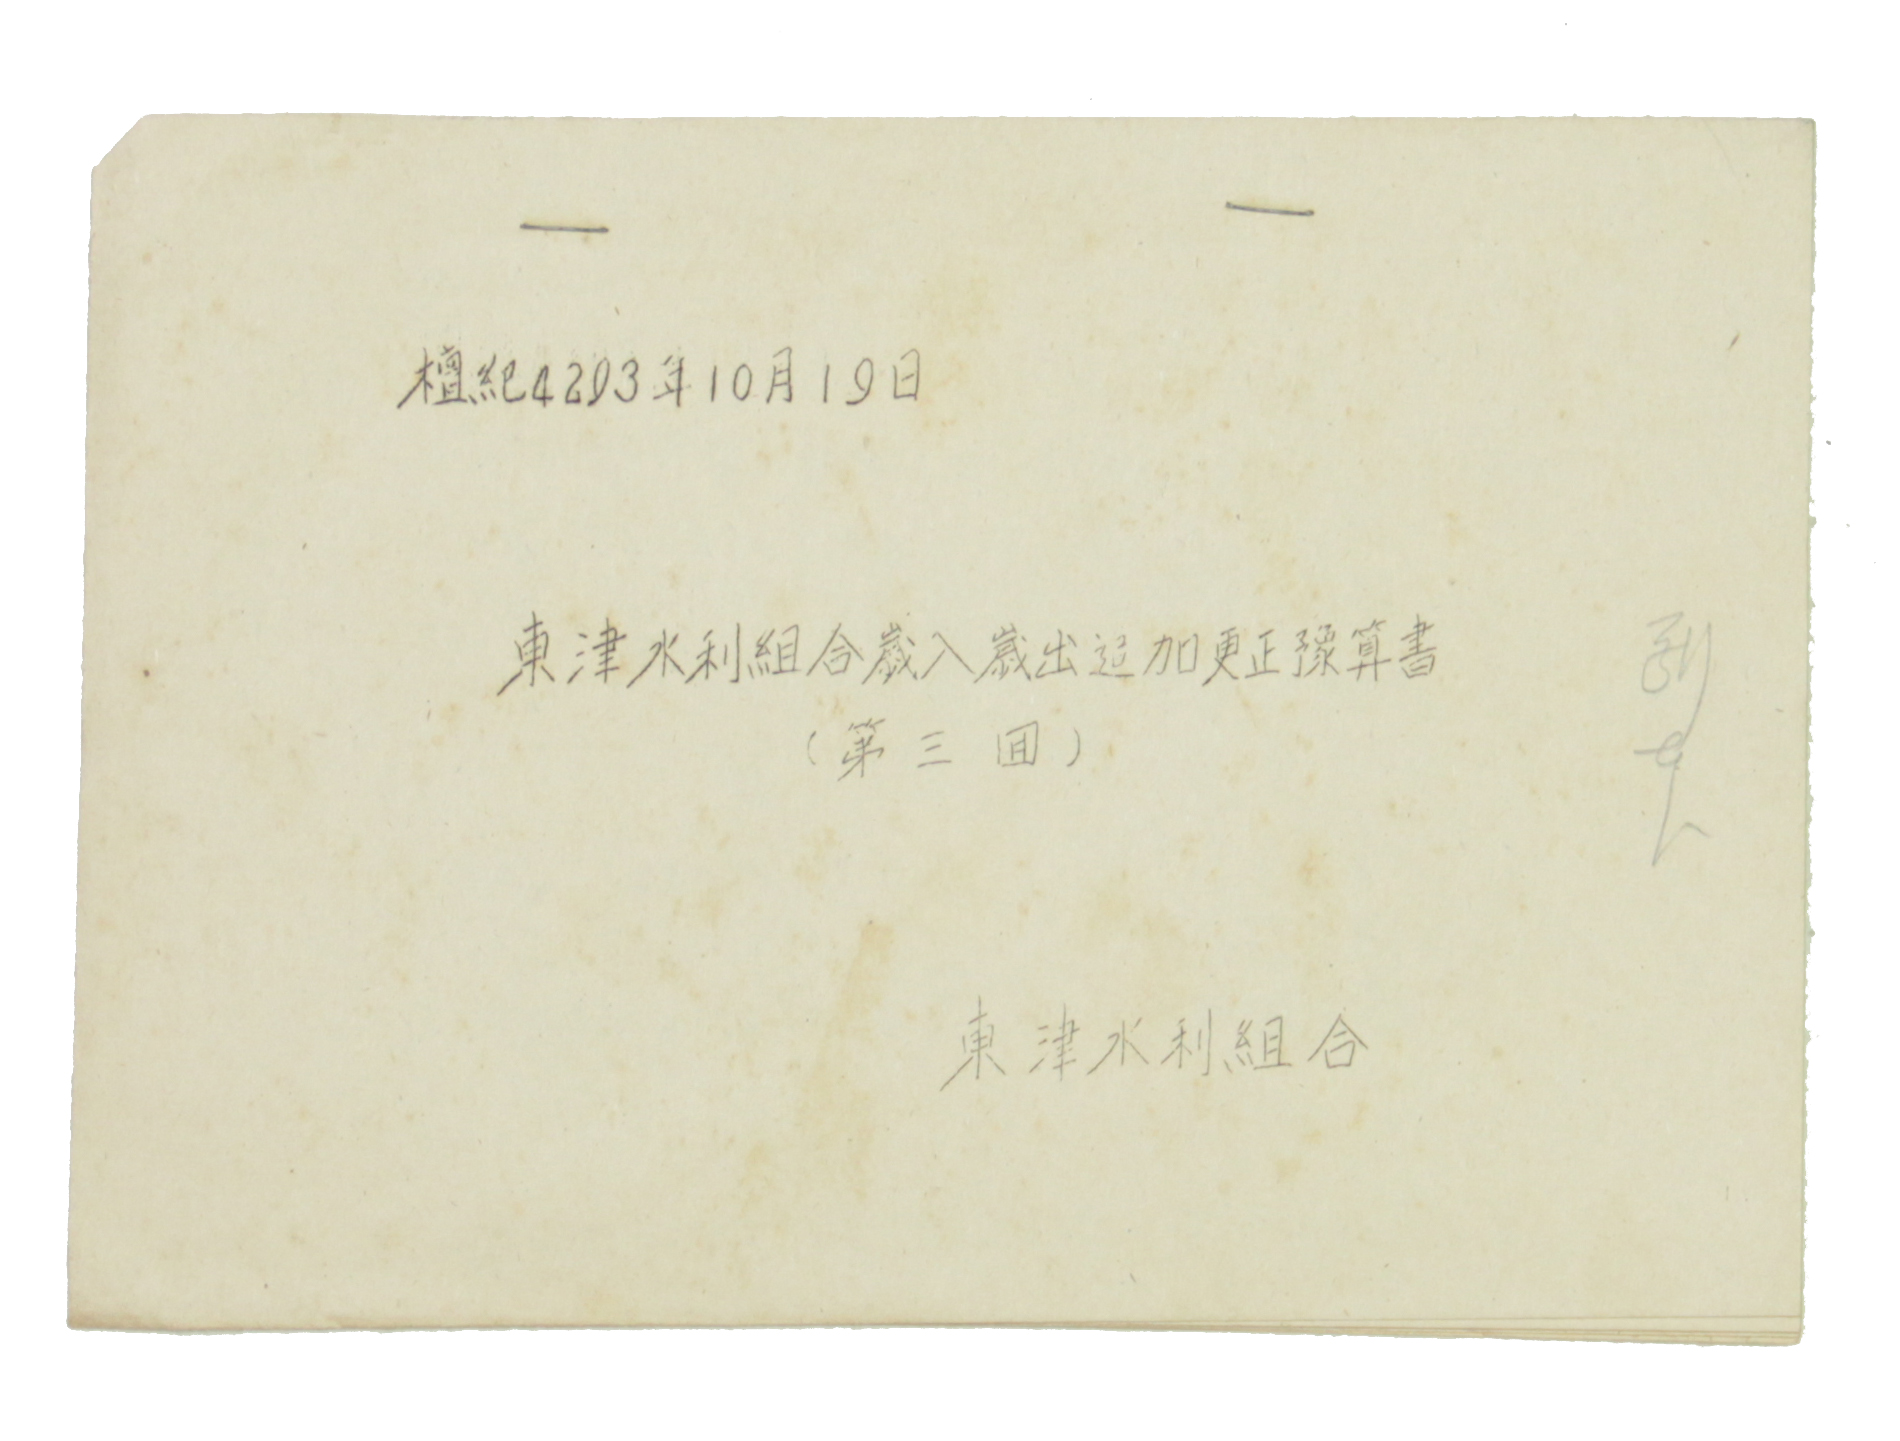 檀紀4293年10月19日
東津水利組合歲入歲出追加更正豫算書
(第三回)
東津水利組合